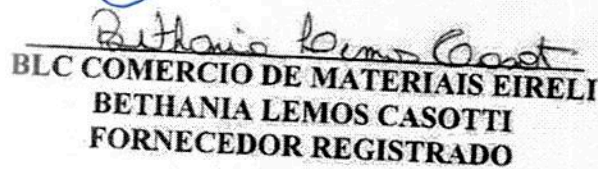 Bethania Lemos Casotti
BLC COMERCIO DE MATERIAIS EIRELI
BETHANIA LEMOS CASOTTI
FORNECEDOR REGISTRADO